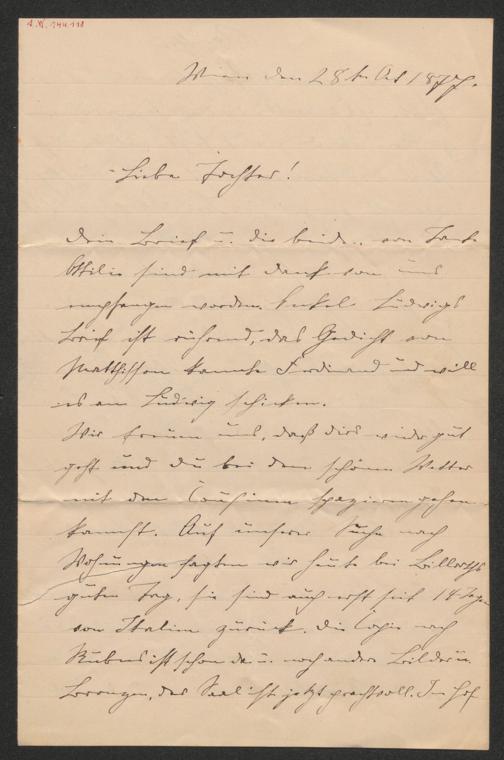 Wien den 28ten Oct 1877.
Liebe Tochter!
Dein Brief u. die beide.. von Tante
Ottilie sind mit Dank von uns
empfangen worden. Onkel Ludwigs
Brief ist rührend, das Gedicht von
Matthisson kannte Ferdinand und will
es an Ludwig schicken.
Wir freuen uns, daß dirs wieder gut
geht und du bei dem schönen Wetter
mit den Cousinen spazieren gehen
kannst. Auf unserer Suche nach
Wohnungen sagten wir heute bei Billroths
guten Tag, sie sind auch erst seit 14 Tagen
von Italien zurück. die Copie nach
Rubens ist schon da u. noch andere Bilder u.
der Saal ist jetzt prachtvoll. Im Hof